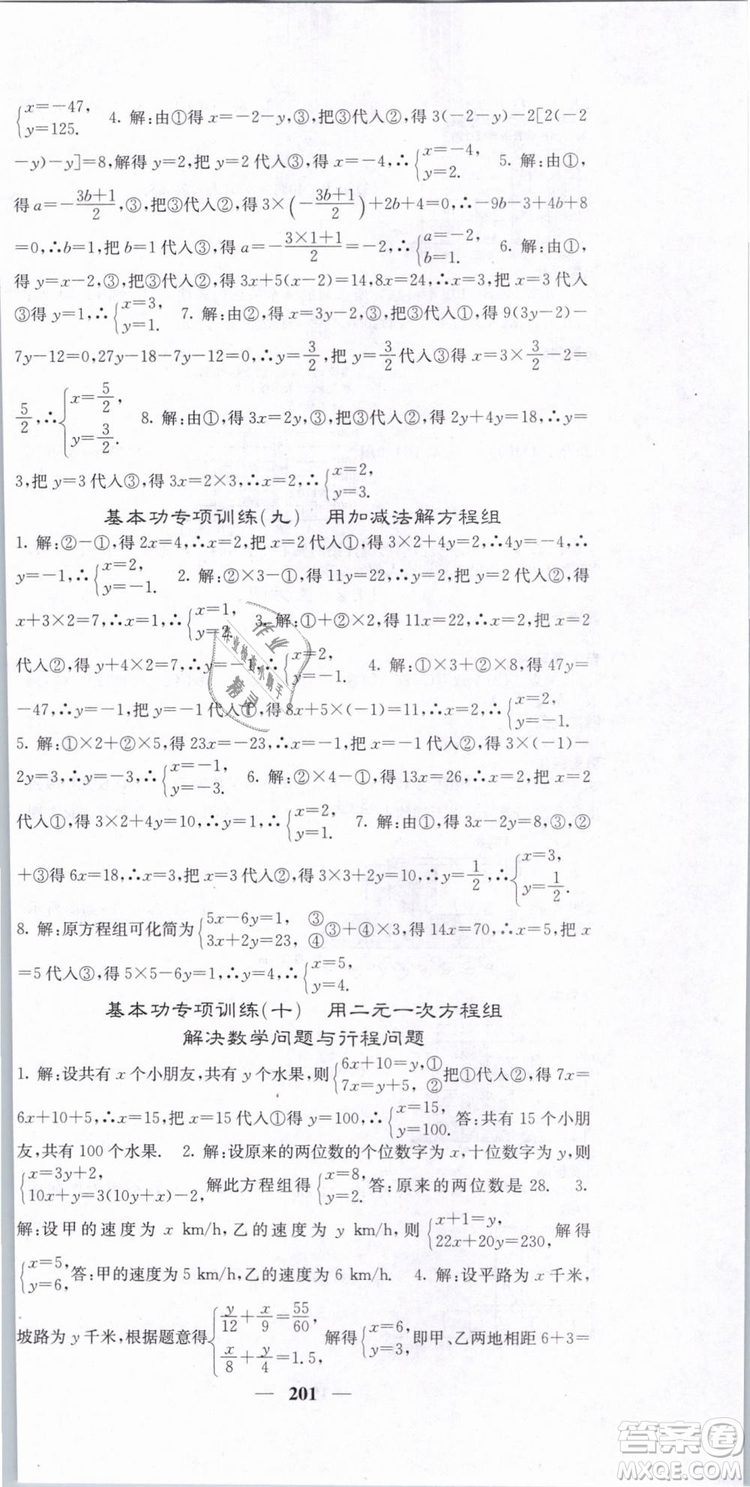 {x=-47, y=125. 4. 解:由①得x=-2-y,③,把③代入②,得3(-2-y)-2[2(-2
-y)-y]=8,解得y=2,把y=2代入③,得x=-4,∴{x=-4, y=2. 5. 解:由①,
得a=-(3b+1)/2,③,把③代入②,得3×(-(3b+1)/2)+2b+4=0,∴-9b-3+4b+8
=0,∴b=1,把b=1代入③,得a=-(3×1+1)/2=-2,∴{a=-2, b=1. 6. 解:由①,
得y=x-2,③,把③代入②,得3x+5(x-2)=14,8x=24,∴x=3,把x=3代入
③得y=1,∴{x=3, y=1. 7. 解:由②,得x=3y-2,③,把③代入①,得9(3y-2)-
7y-12=0,27y-18-7y-12=0,∴y=3/2,把y=3/2代入③,得x=3×3/2-2=
5/2,∴{x=5/2, y=3/2. 8. 解:由①,得3x=2y,③,把③代入②,得2y+4y=18,∴y=
3,把y=3代入③,得3x=2×3,∴x=2,∴{x=2, y=3.
基本功专项训练(九) 用加减法解方程组
1. 解:②-①,得2x=4,∴x=2,把x=2代入①,得3×2+4y=2,∴4y=-4,∴
y=-1,∴{x=2, y=-1. 2. 解:②×3-①,得11y=22,∴y=2,把y=2代入②,得
x+3×2=7,∴x=1,∴{x=1, y=2. 3. 解:①+②×2,得11x=22,x=2,把x=2
代入②,得y+4×2=7,∴y=-1,∴{x=2, y=-1. 4. 解:①×4-②,得47y=
-47,∴y=-1,把y=-1代入①,得8x+5×(-1)=11,∴x=2,∴{x=2, y=-1.
5. 解:①×2+②×5,得23x=-23,∴x=-1,把x=-1代入②,得3×(-1)-
2y=3,∴y=-3,∴{x=-1, y=-3. 6. 解:①+②×2,得13x=26,∴x=2,把x=2
代入②,得3×2+4y=10,∴y=1,∴{x=2, y=1. 7. 解:①×4,得3x-2y=8,③,②
+③得6x=18,∴x=3,把x=3代入②,得3×3+2y=10,∴y=1/2,∴{x=3, y=1/2.
8. 解:原方程组可化简为{5x-6y=1, ③ 3x+2y=23, ④ ③+④×3,得14x=70,∴x=5,把x
=5代入③,得5×5-6y=1,∴y=4,∴{x=5, y=4.
基本功专项训练(十) 用二元一次方程组
解决数学问题与行程问题
1. 解:设共有x个小朋友,有y个水果,则{6x+10=y,① 7x=y+5,② 把①代入②,得7x=
6x+10+5,∴x=15,把x=15代入①,得y=100,∴{x=15, y=100. 答:共有15个小朋
友,共有100个水果. 2. 解:设原来的两位数的个位数字为x,十位数字为y,则
{x=3y+2, 10x+y=3(10y+x)-2, 解此方程组得{x=8, y=2. 答:原来的两位数是28. 3.
解:设甲的速度为x km/h,乙的速度为y km/h,则{x+1=y, 22x+20y=230, 解得
{x=5, y=6, 答:甲的速度为5 km/h,乙的速度为6 km/h. 4. 解:设平路为x千米,
坡路为y千米,根据题意得{y/12+x/9=55/60, x/8+y/4=1.5, 解得{x=6, y=3, 即甲、乙两地相距6+3=
— 201 —
答案圈
MXQE.COM